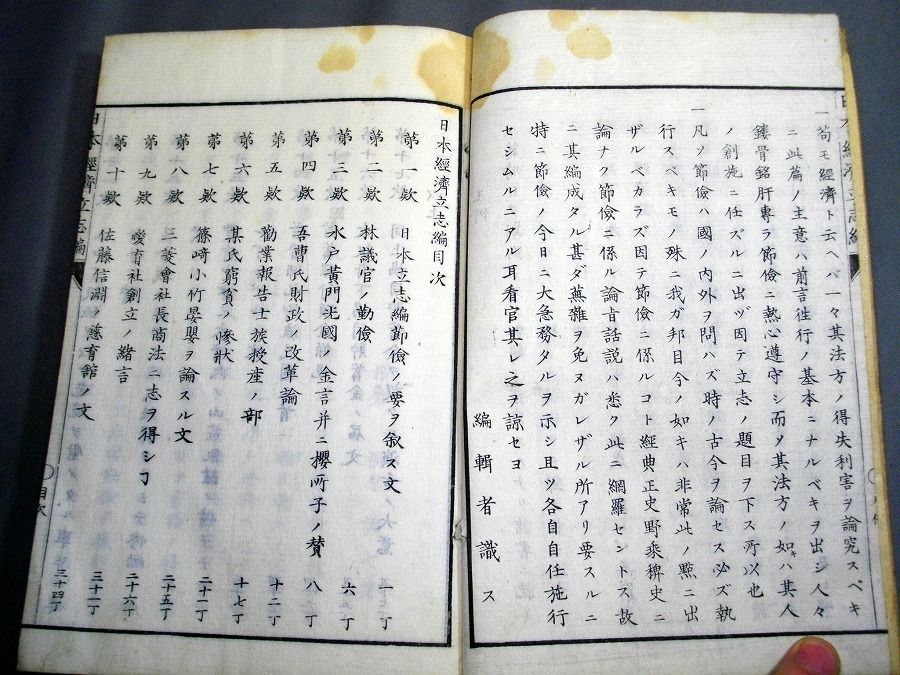 一苟モ經濟ト云ヘバ一々其法方ノ得失利害ヲ論究スベキ
ニ此篇ノ主意ハ前言徃行ノ基本ニナルベキヲ出シ人々
鏤骨銘肝專ラ節儉ニ熱心遵守シ而〆其法方ノ如キハ其人
ノ創施ニ任ズルニ出ヅ因テ立志ノ題目ヲ下ス所以也
一凡ソ節儉ハ國ノ内外ヲ問ハズ時ノ古今ヲ論セス必ズ執
行スベキモノ殊ニ我ガ邦目今ノ如キハ非常此ノ㸃ニ出
ザルベカラズ因テ節儉ニ係ルコト經典正史野乘稗史ニ
論ナク節儉ニ係ル論旨話説ハ悉ク此ニ網羅セントス故
ニ其編成タル甚ダ蕪雜ヲ免ヌガレザル所アリ要スルニ
特ニ節儉ノ今日ニ大急務タルヲ示シ且ツ各自自任施行
セシムルニアル耳看官其レ之ヲ諒セヨ
編輯者識ス
日本經濟立志編目次
第一欵 日本立志編節儉ノ要ヲ叙ス文 一丁
第二欵 林議官ノ勤儉 五丁
第三欵 水戸黄門光國ノ金言并ニ櫻所子ノ賛 六丁
第四欵 吾曹氏財政ノ改革論 八丁
第五欵 勸業報告士族授産ノ部 十二丁
第六欵 某氏窮貧ノ慘狀 十七丁
第七欵 篠﨑小竹晏嬰ヲ論スル文 二十二丁
第八欵 三菱會社長商法ニ志ヲ得シヿ 二十五丁
第九欵 嗳育社創立ノ緒言 二十六丁
第十欵 佐藤信淵ノ慈育舘ノ文 三十二丁
日本經濟立志編
目次
三十四丁